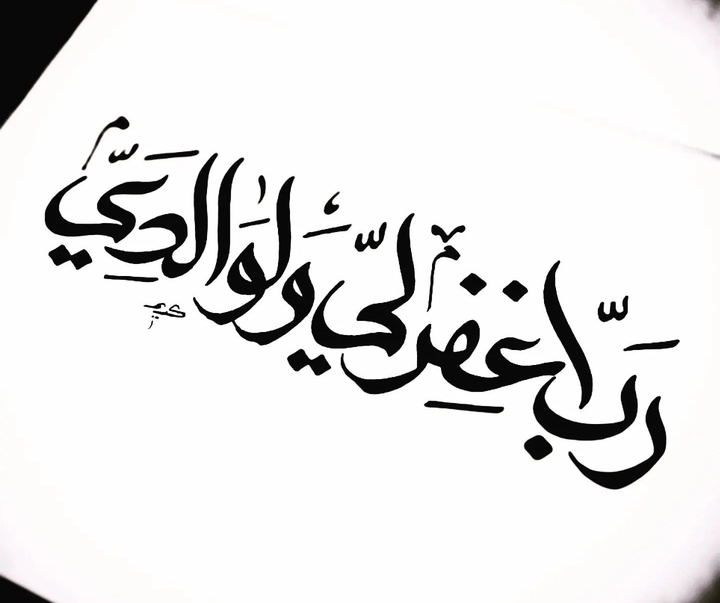 رَبّ اغفِر ليّ وَلوَالدِيَّ